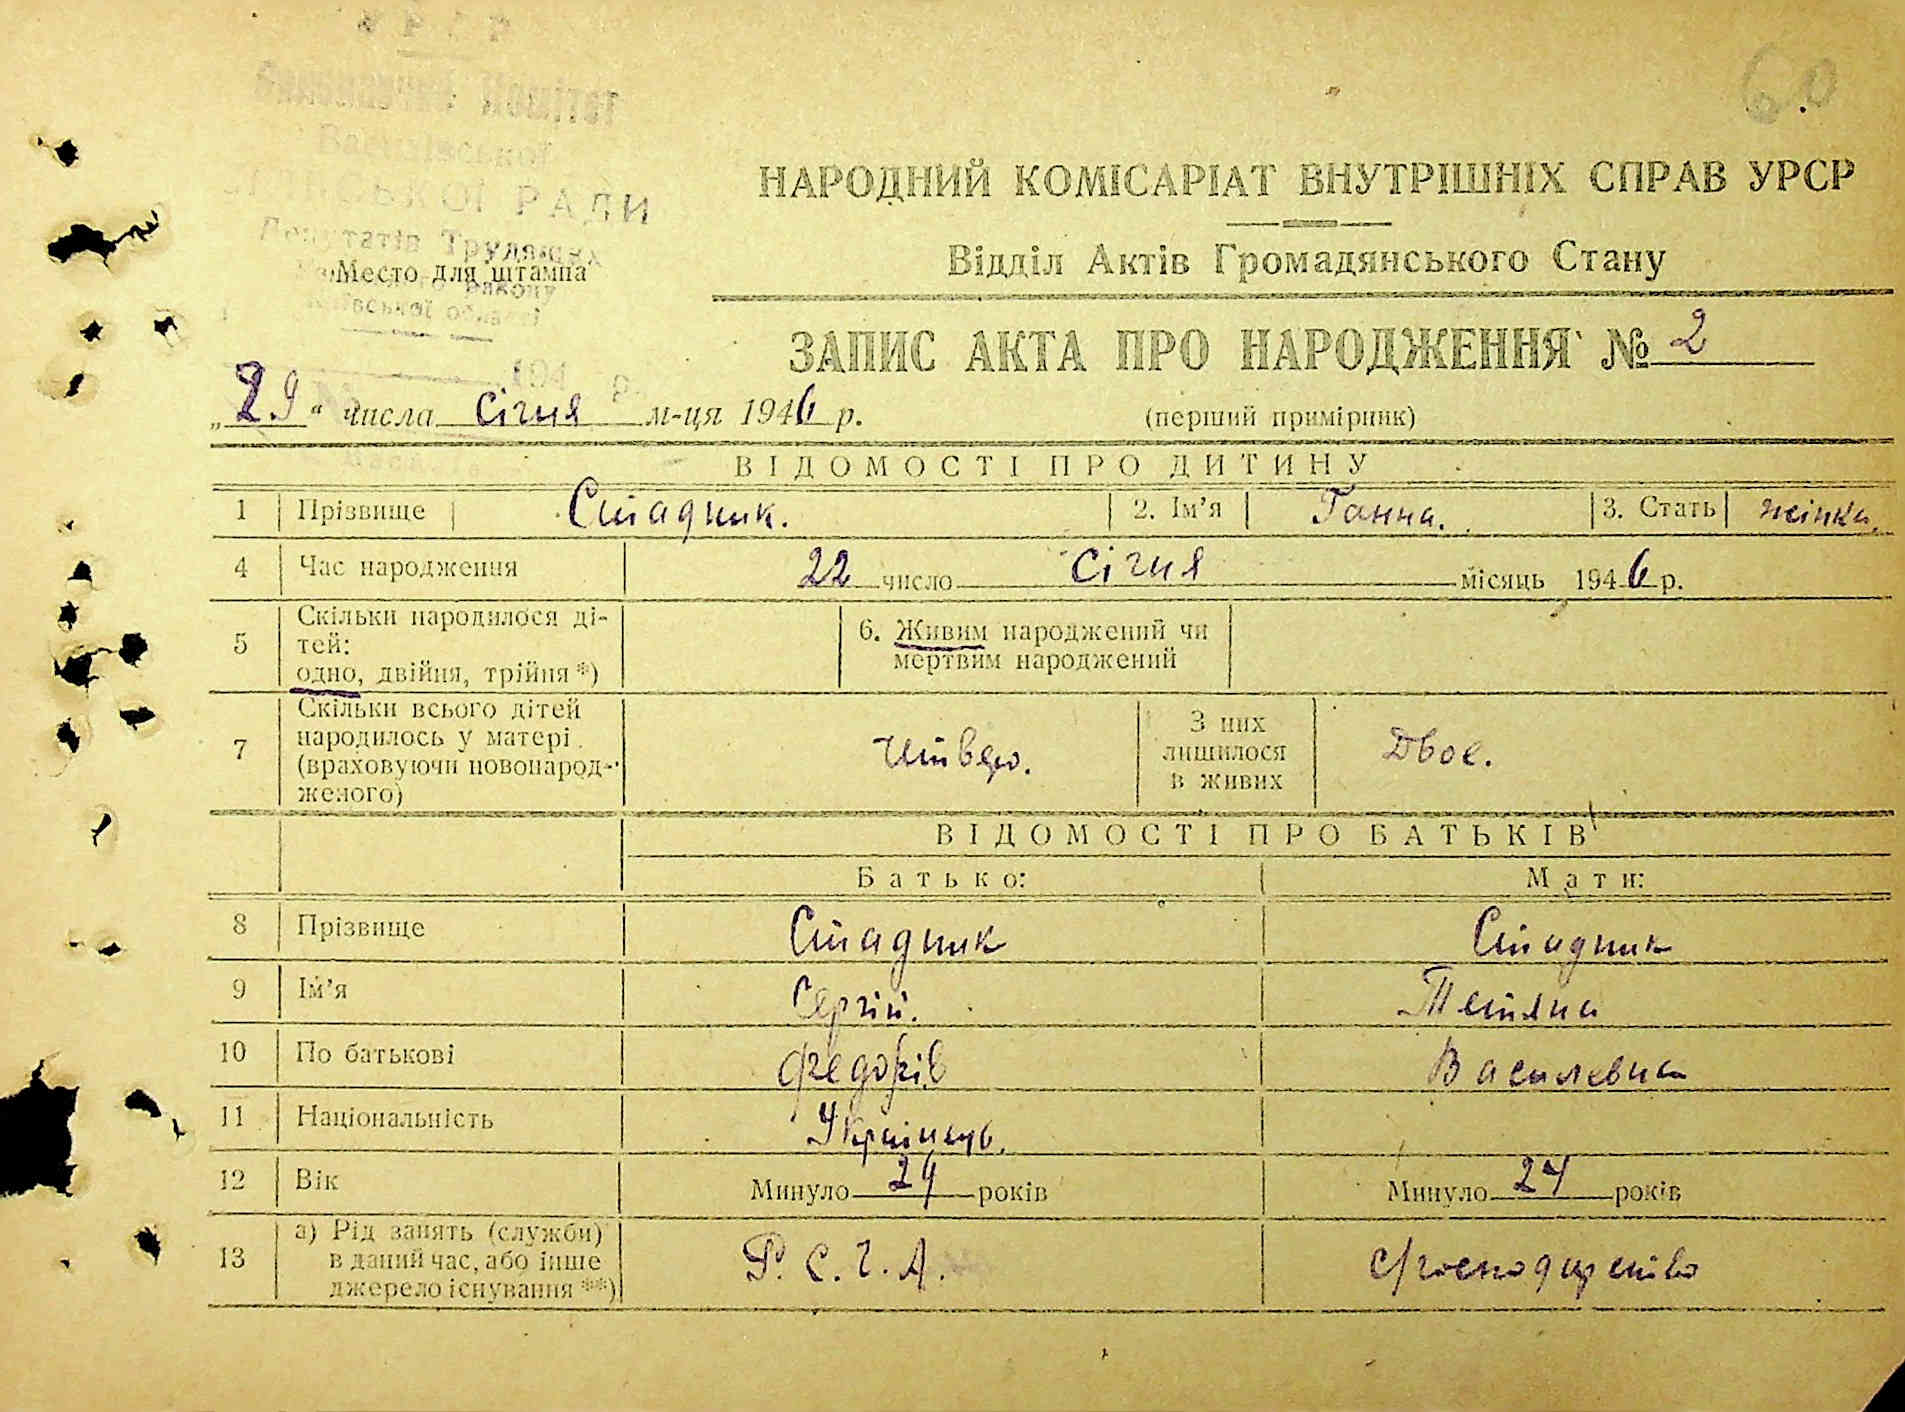 УРСР
Виконавчий Комітет
Василівської
СІЛЬСЬКОЇ РАДИ
Депутатів Трудящих
району
Київської області
Место для штампа
194 р.
60
НАРОДНИЙ КОМІСАРІАТ ВНУТРІШНІХ СПРАВ УРСР
Відділ Актів Громадянського Стану
ЗАПИС АКТА ПРО НАРОДЖЕННЯ № 2
„29“ числа січня м-ця 1946 р.
(перший примірник)
ВІДОМОСТІ ПРО ДИТИНУ
1 Прізвище Стадник. 2. Ім’я Ганна. 3. Стать жінка.
4 Час народження 22 число січня місяць 1946 р.
5 Скільки народилося ді-
тей:
одно, двійня, трійня *)
6. Живим народжений чи
мертвим народжений
7 Скільки всього дітей
народилось у матері
(враховуючи новонарод-
женого)
З них
лишилося
в живих
Двоє.
ВІДОМОСТІ ПРО БАТЬКІВ
Батько: Мати:
8 Прізвище Стадник Стадник
9 Ім’я Сергій. Тетяна
10 По батькові Федорів Василевна
11 Національність Українець.
12 Вік Минуло 24 років Минуло 24 років
13 а) Рід занять (служби)
в даний час, або інше
джерело існування **)
Р. С. Ч. А.